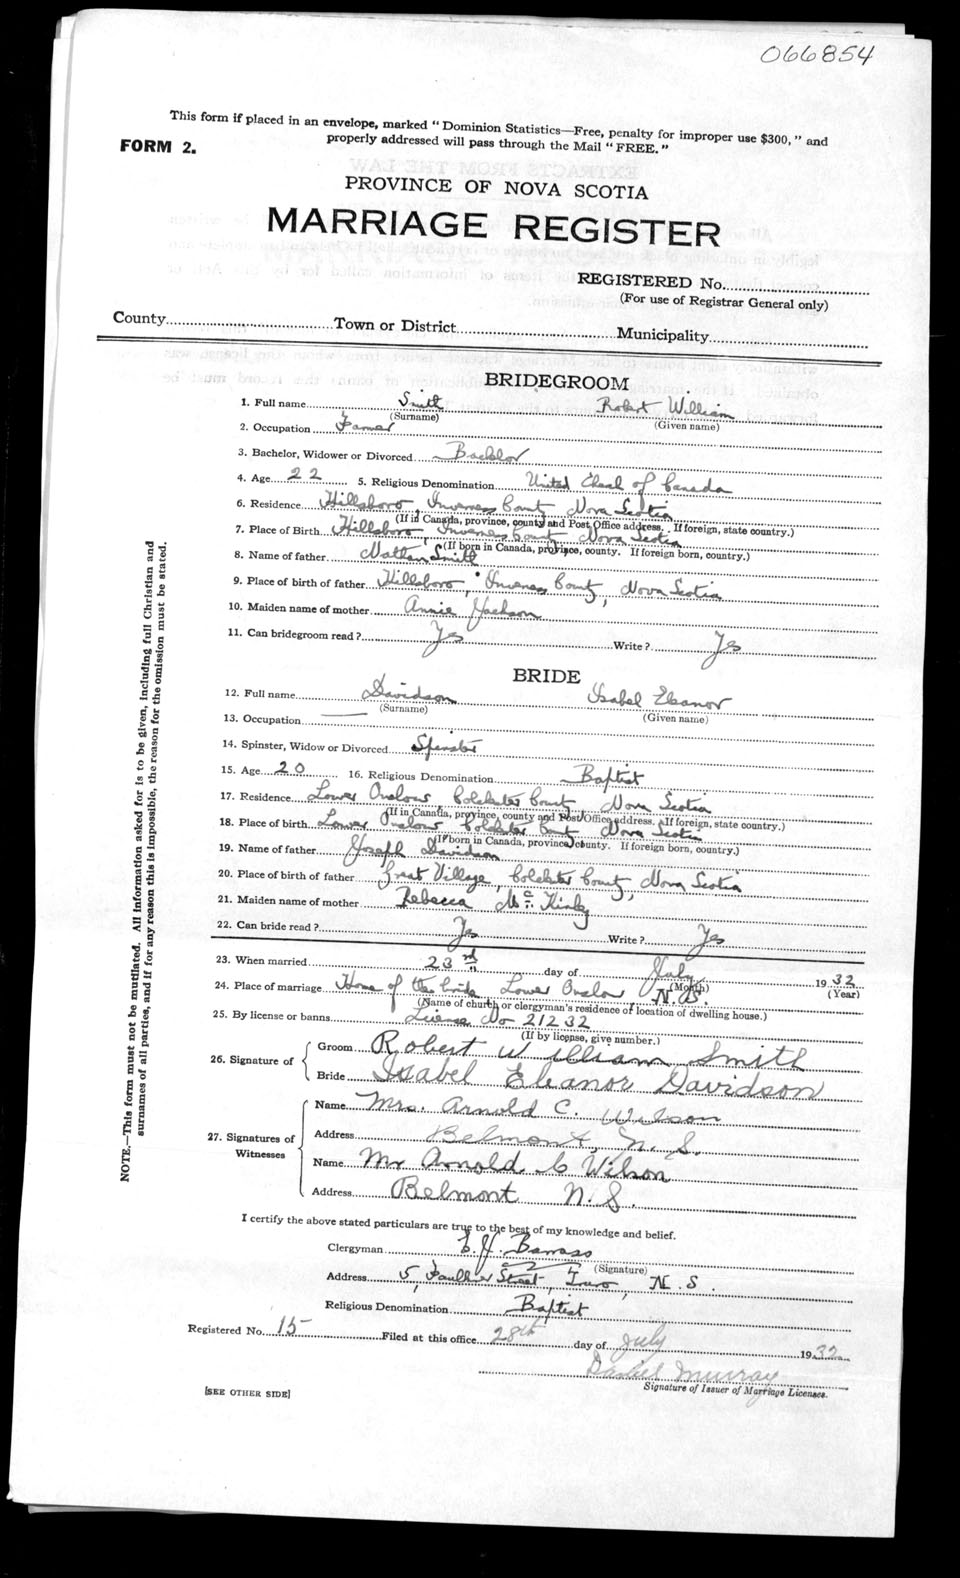 066854
This form if placed in an envelope, marked "Dominion Statistics—Free, penalty for improper use $300," and
properly addressed will pass through the Mail "FREE."
FORM 2.
PROVINCE OF NOVA SCOTIA
MARRIAGE REGISTER
REGISTERED No.
(For use of Registrar General only)
County Town or District Municipality
BRIDEGROOM
1. Full name Smith Robert William
(Surname) (Given name)
2. Occupation Farmer
3. Bachelor, Widower or Divorced Bachlor
4. Age 22 5. Religious Denomination United Church of Canada
6. Residence Hillsboro, Inverness County Nova Scotia
(If in Canada, province, county and Post Office address. If foreign, state country.)
7. Place of Birth Hillsboro, Inverness County Nova Scotia
(If born in Canada, province, county. If foreign born, country.)
8. Name of father Nathan Smith
9. Place of birth of father Hillsboro, Inverness County, Nova Scotia
10. Maiden name of mother Annie Jackson
11. Can bridegroom read? Yes Write? Yes
BRIDE
12. Full name Davidson Isabel Eleanor
(Surname) (Given name)
13. Occupation —
14. Spinster, Widow or Divorced Spinster
15. Age 20 16. Religious Denomination Baptist
17. Residence Lower Onslow Colchester County Nova Scotia
(If in Canada, province, county and Post Office address. If foreign, state country.)
18. Place of birth Lower Onslow Colchester County Nova Scotia
(If born in Canada, province, county. If foreign born, country.)
19. Name of father Joseph Davidson
20. Place of birth of father Great Village, Colchester County, Nova Scotia
21. Maiden name of mother Rebecca Mc
22. Can bride read? Yes Write? Yes
23. When married 23rd day of July 1932
(Month) (Year)
24. Place of marriage Home of the bride Lower Onslow N.S.
(Name of church or clergyman's residence, location of dwelling house.)
25. By license or banns License No 21232
(If by license, give number.)
26. Signature of Groom Robert William Smith
Bride Isabel Eleanor Davidson
27. Signatures of Witnesses
Name Mrs. Arnold C. Wilson
Address Belmont, N.S.
Name Mr Arnold C Wilson
Address Belmont N.S.
I certify the above stated particulars are true to the best of my knowledge and belief.
Clergyman E. J. Barrass
(Signature)
Address 5, Faulkner Street, Truro, N.S.
Religious Denomination Baptist
Registered No. 15 Filed at this office 28th day of July 1932
Murray
Signature of Issuer of Marriage Licenses.
[SEE OTHER SIDE]
NOTE.—This form must not be mutilated. All information asked for is to be given, including full Christian and
surnames of all parties, and if for any reason this is impossible, the reason for the omission must be stated.